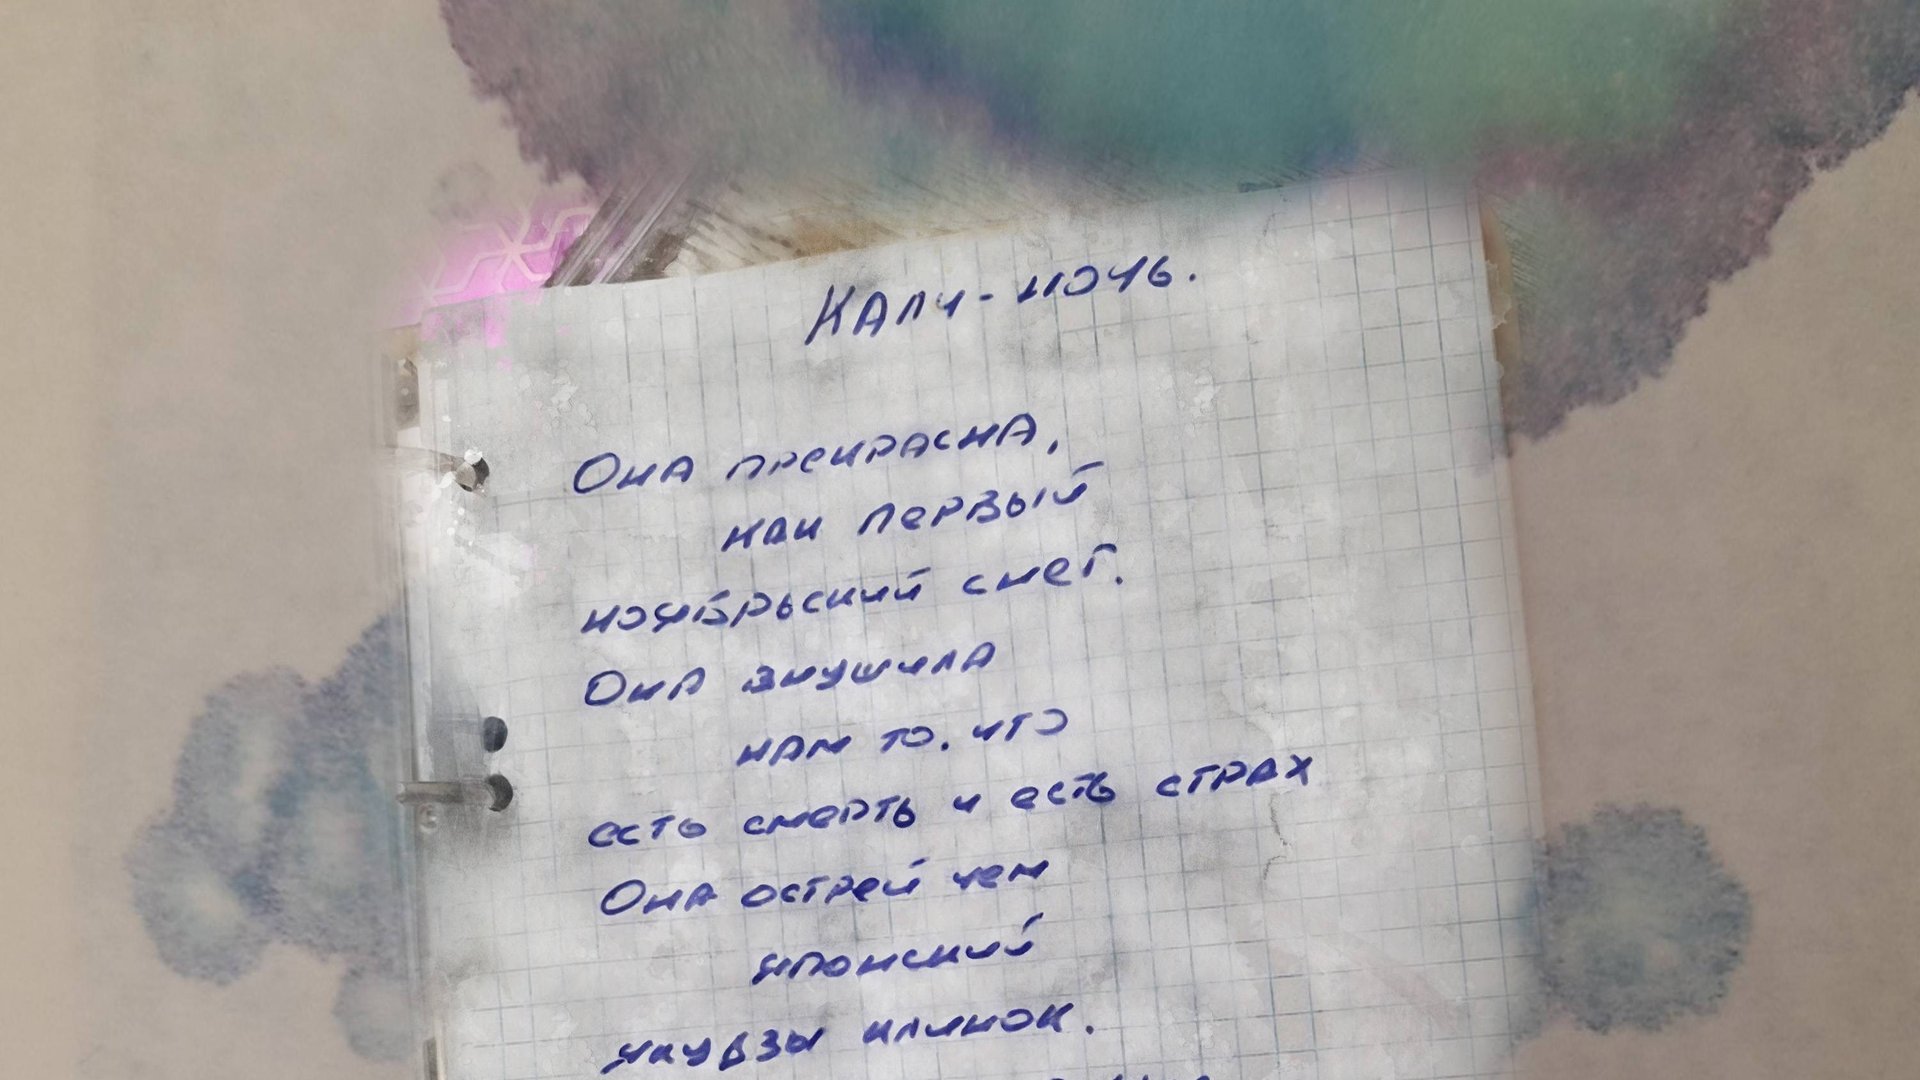 Кали-ночь.
Она прекрасна,
как первый
ноябрьский снег.
Она внушила
нам то, что
есть смерть и есть страх
Она острей чем
японский
якудзы клинок.